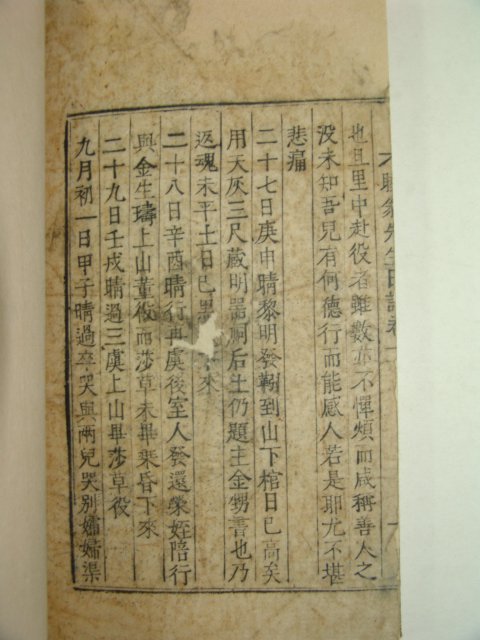 先生日記卷
也且里中赴役者雖數亦不憚煩而咸稱善人之
没未知吾兒有何德行而能感人若是耶尤不堪
悲痛
二十七日庚申晴黎明發靷到山下棺日已高矣
用天灰三尺藏明器祠后土仍題主金甥書也乃
返魂未平土日已黑 來
二十八日辛酉晴行再虞後室人發還榮姪陪行
與金生璹上山董役而莎草未畢乘昏下來
二十九日壬戌晴過三虞上山畢莎草役
九月初一日甲子晴過卒哭與兩兒哭別孀婦渠